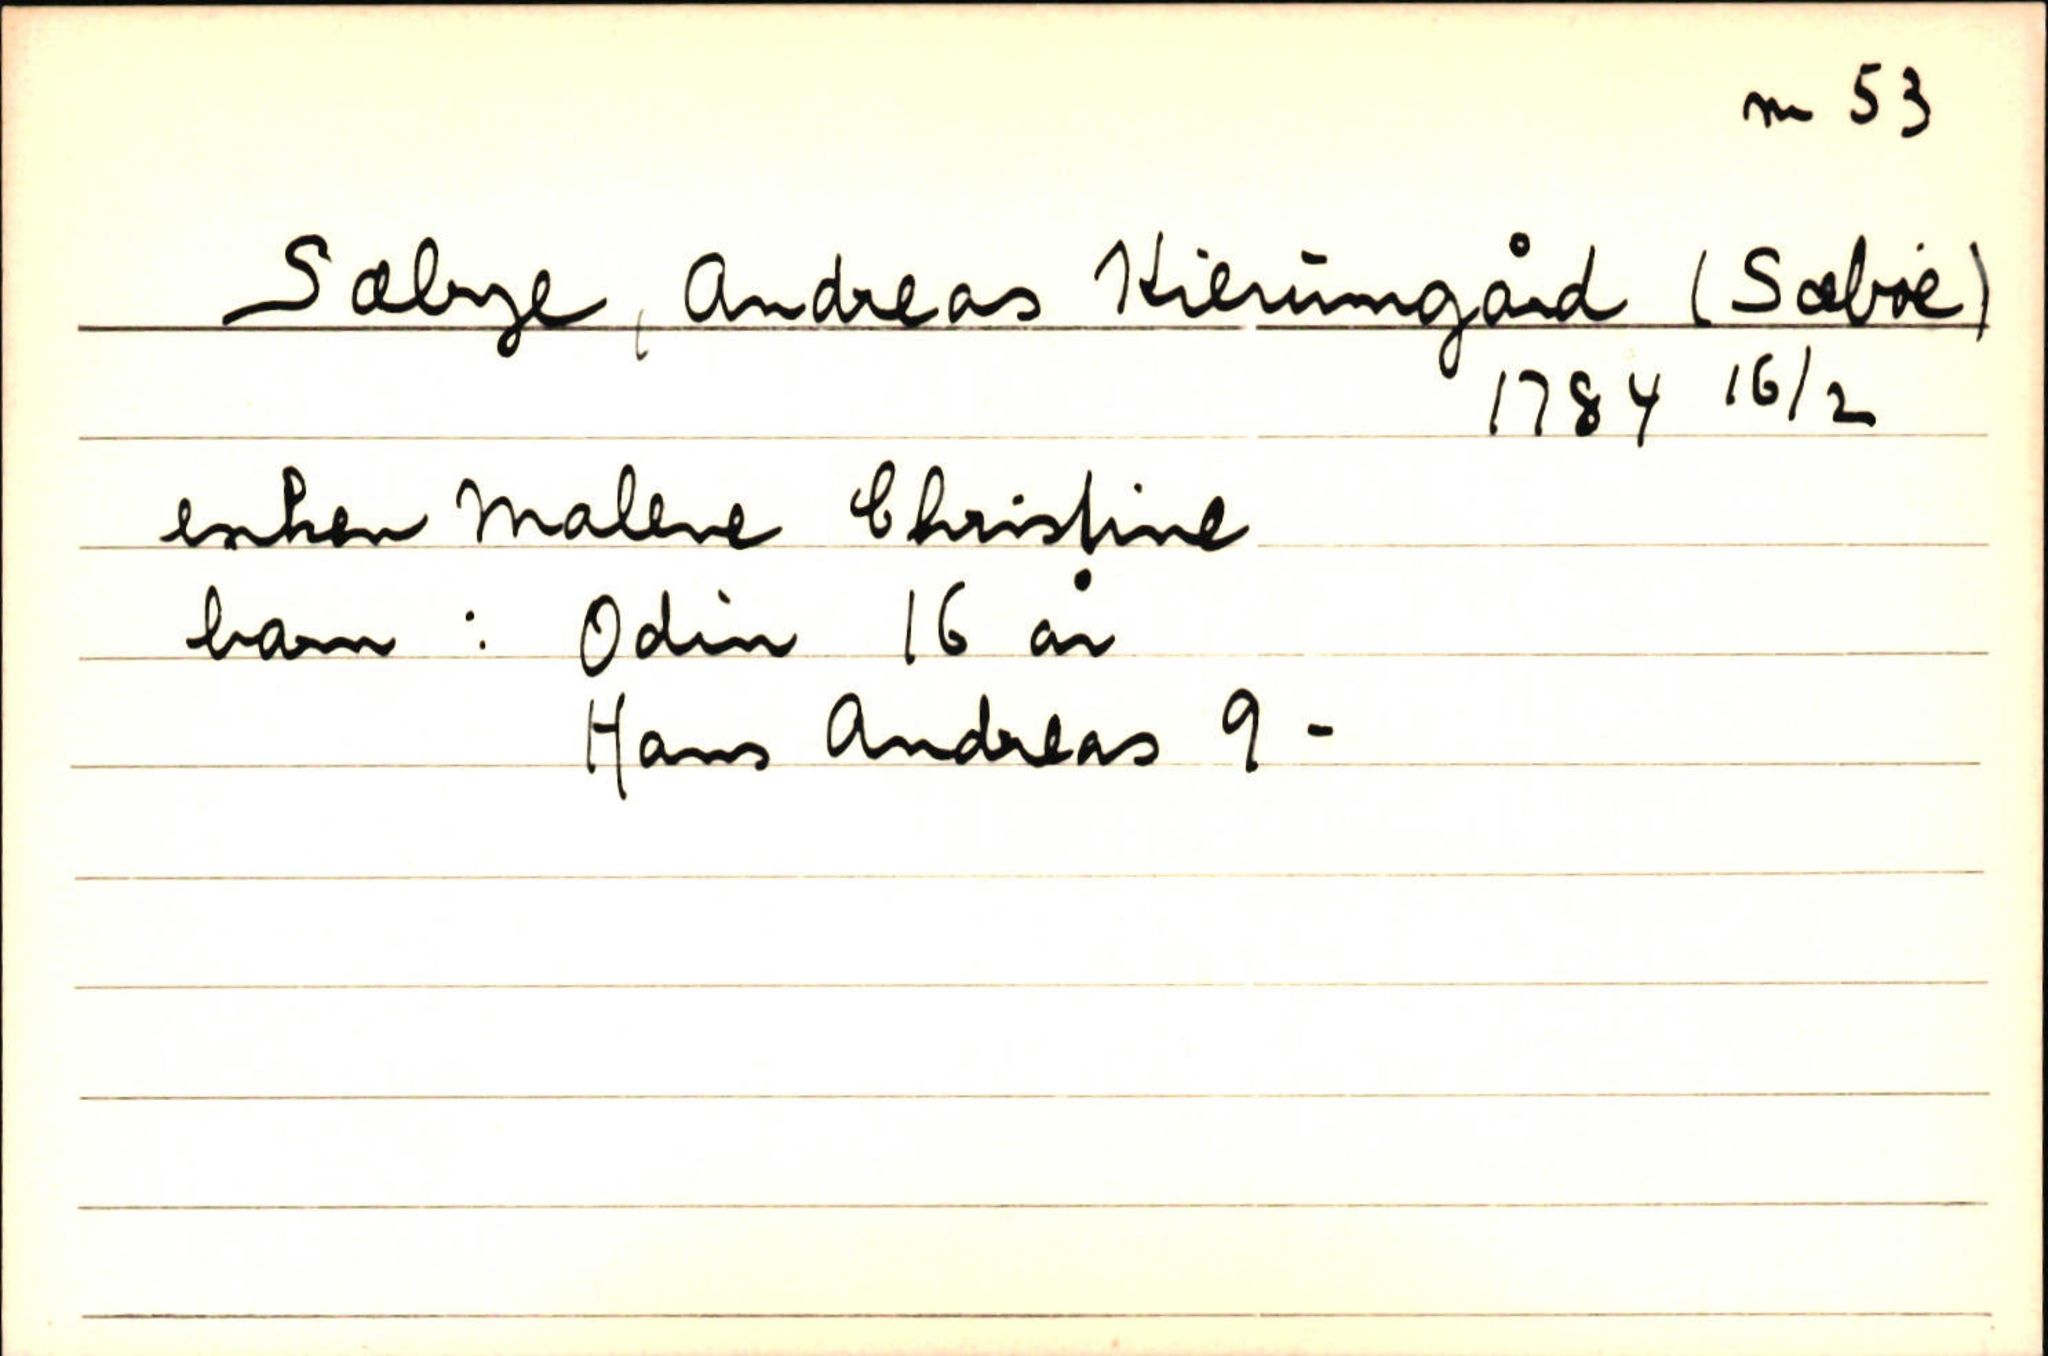 m 53
Sæbye, Andreas Kierumgård (Sæbøe)
1784 16/2
enken Malene Christine
barn : Odin 16 år
Hans Andreas 9 -